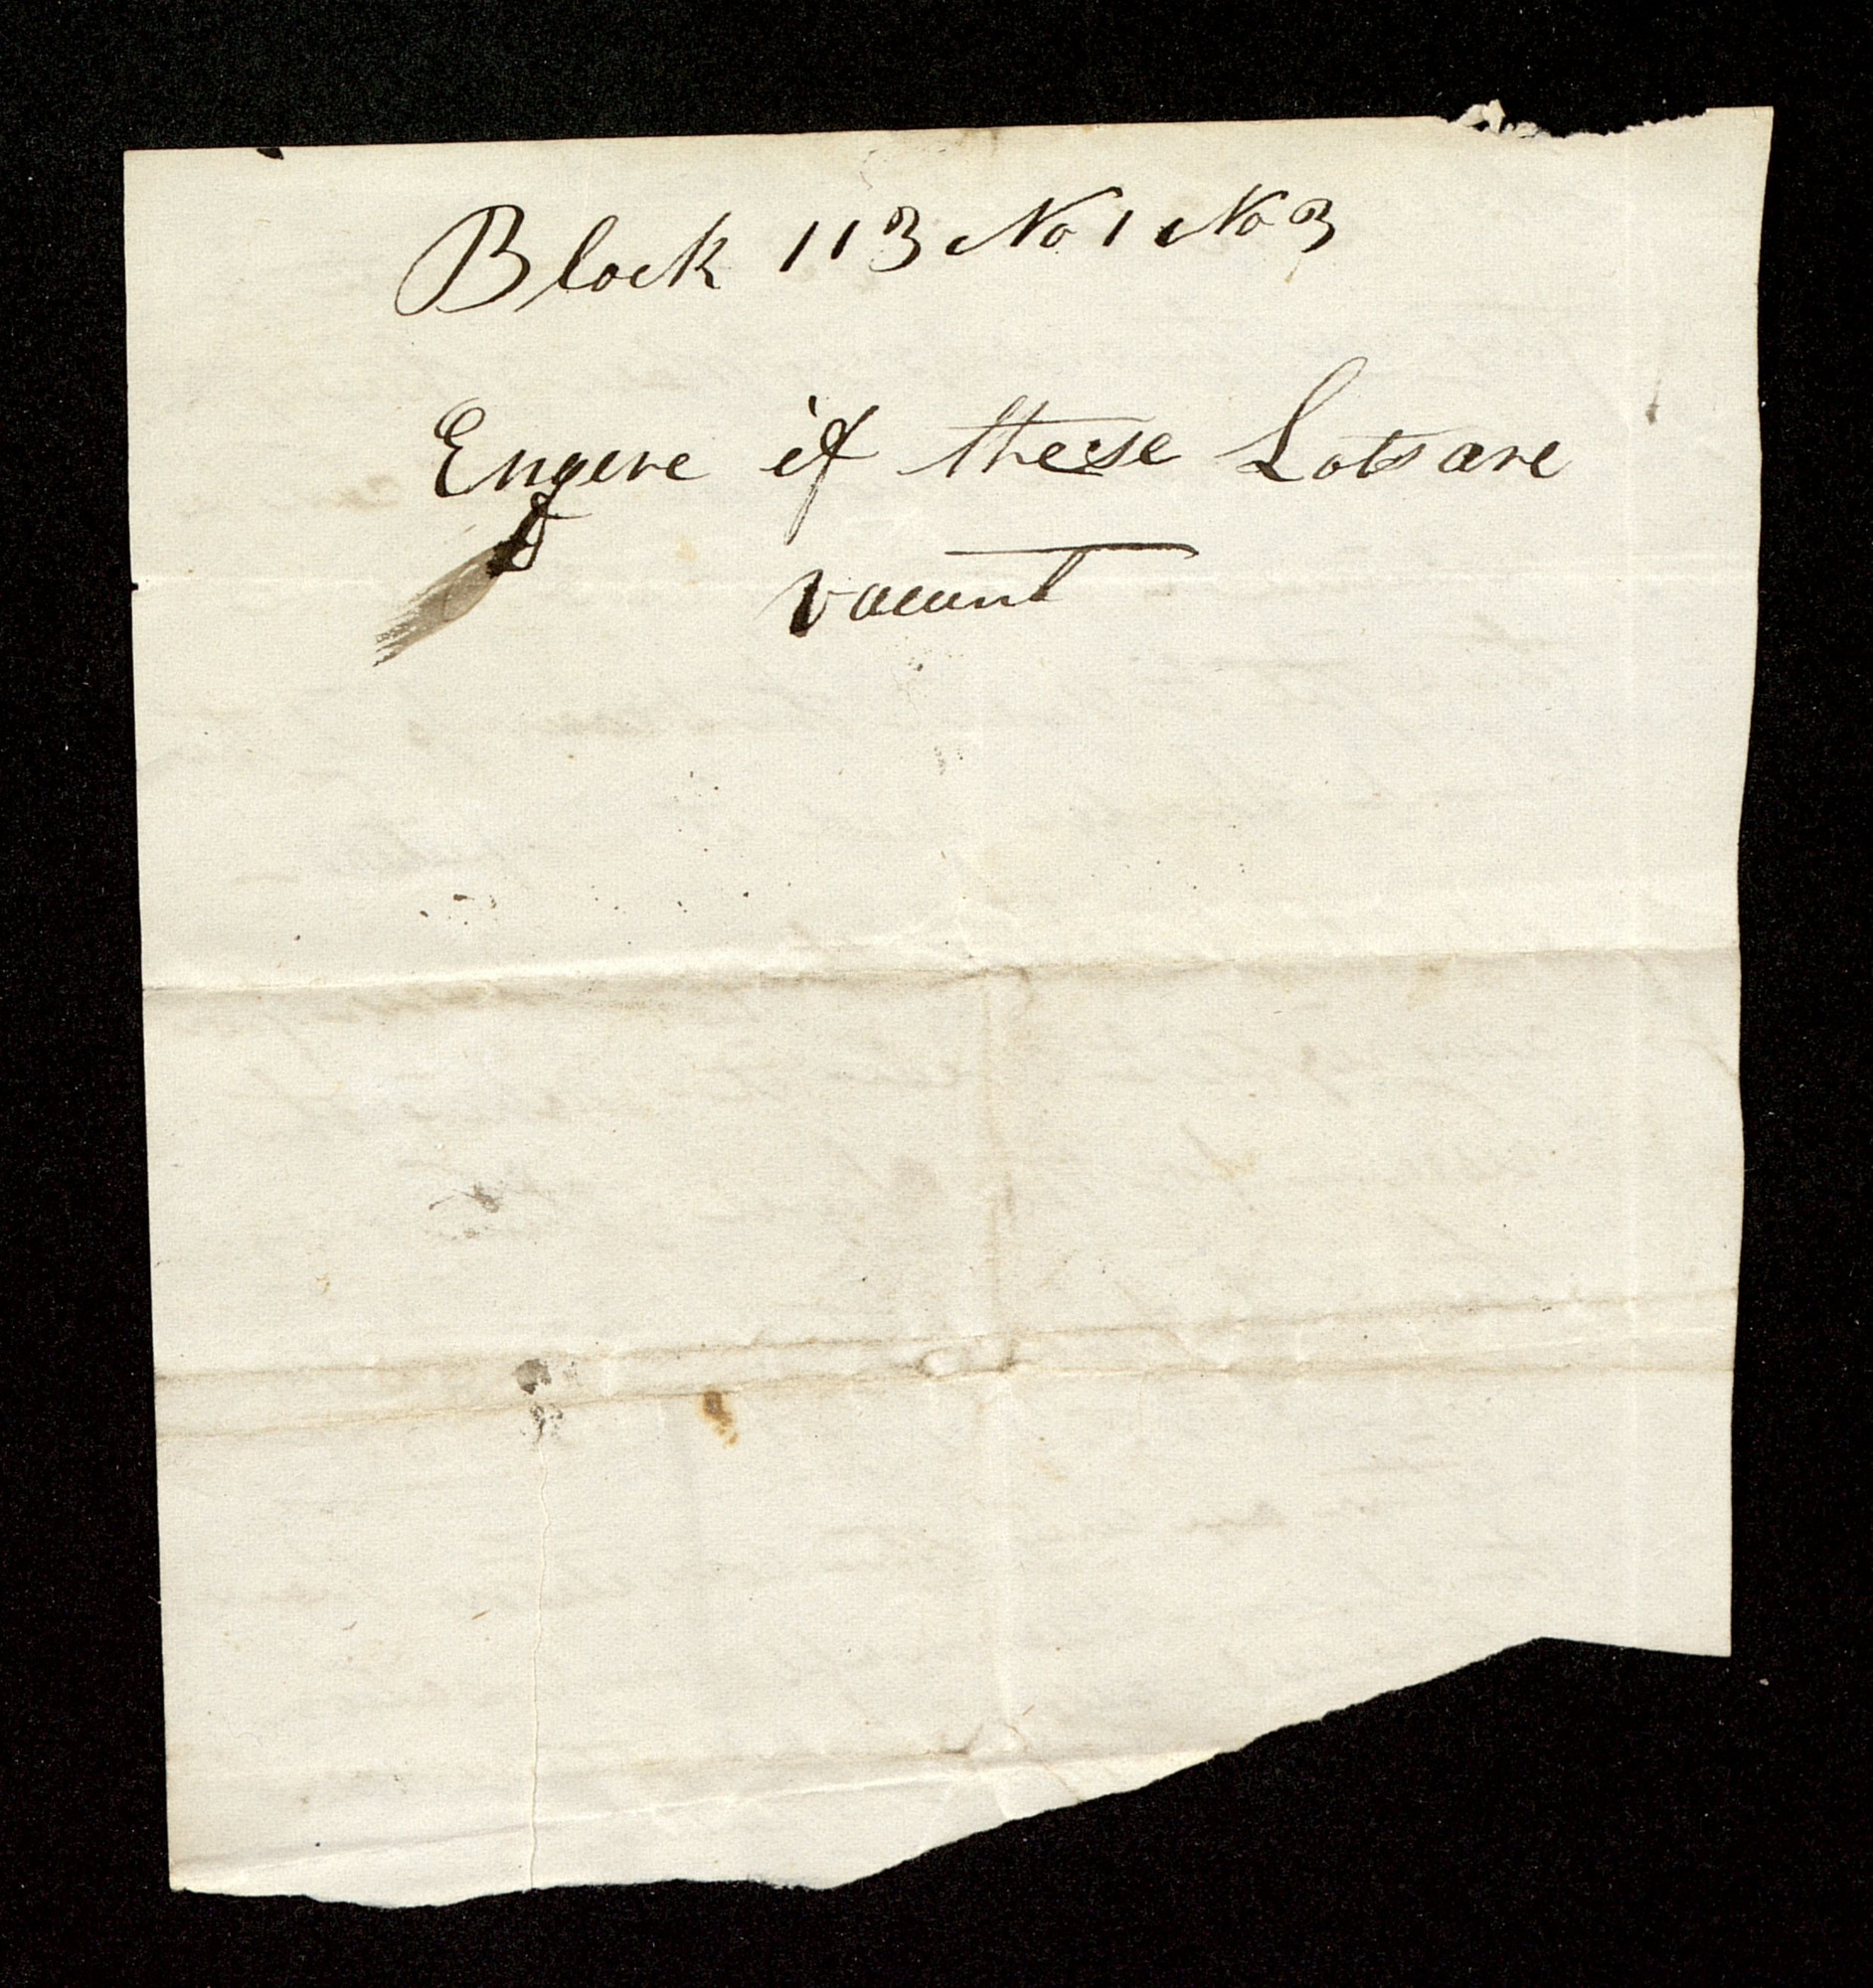 Block 113 No 1 No 3
Enqere if these Lots are
vacant